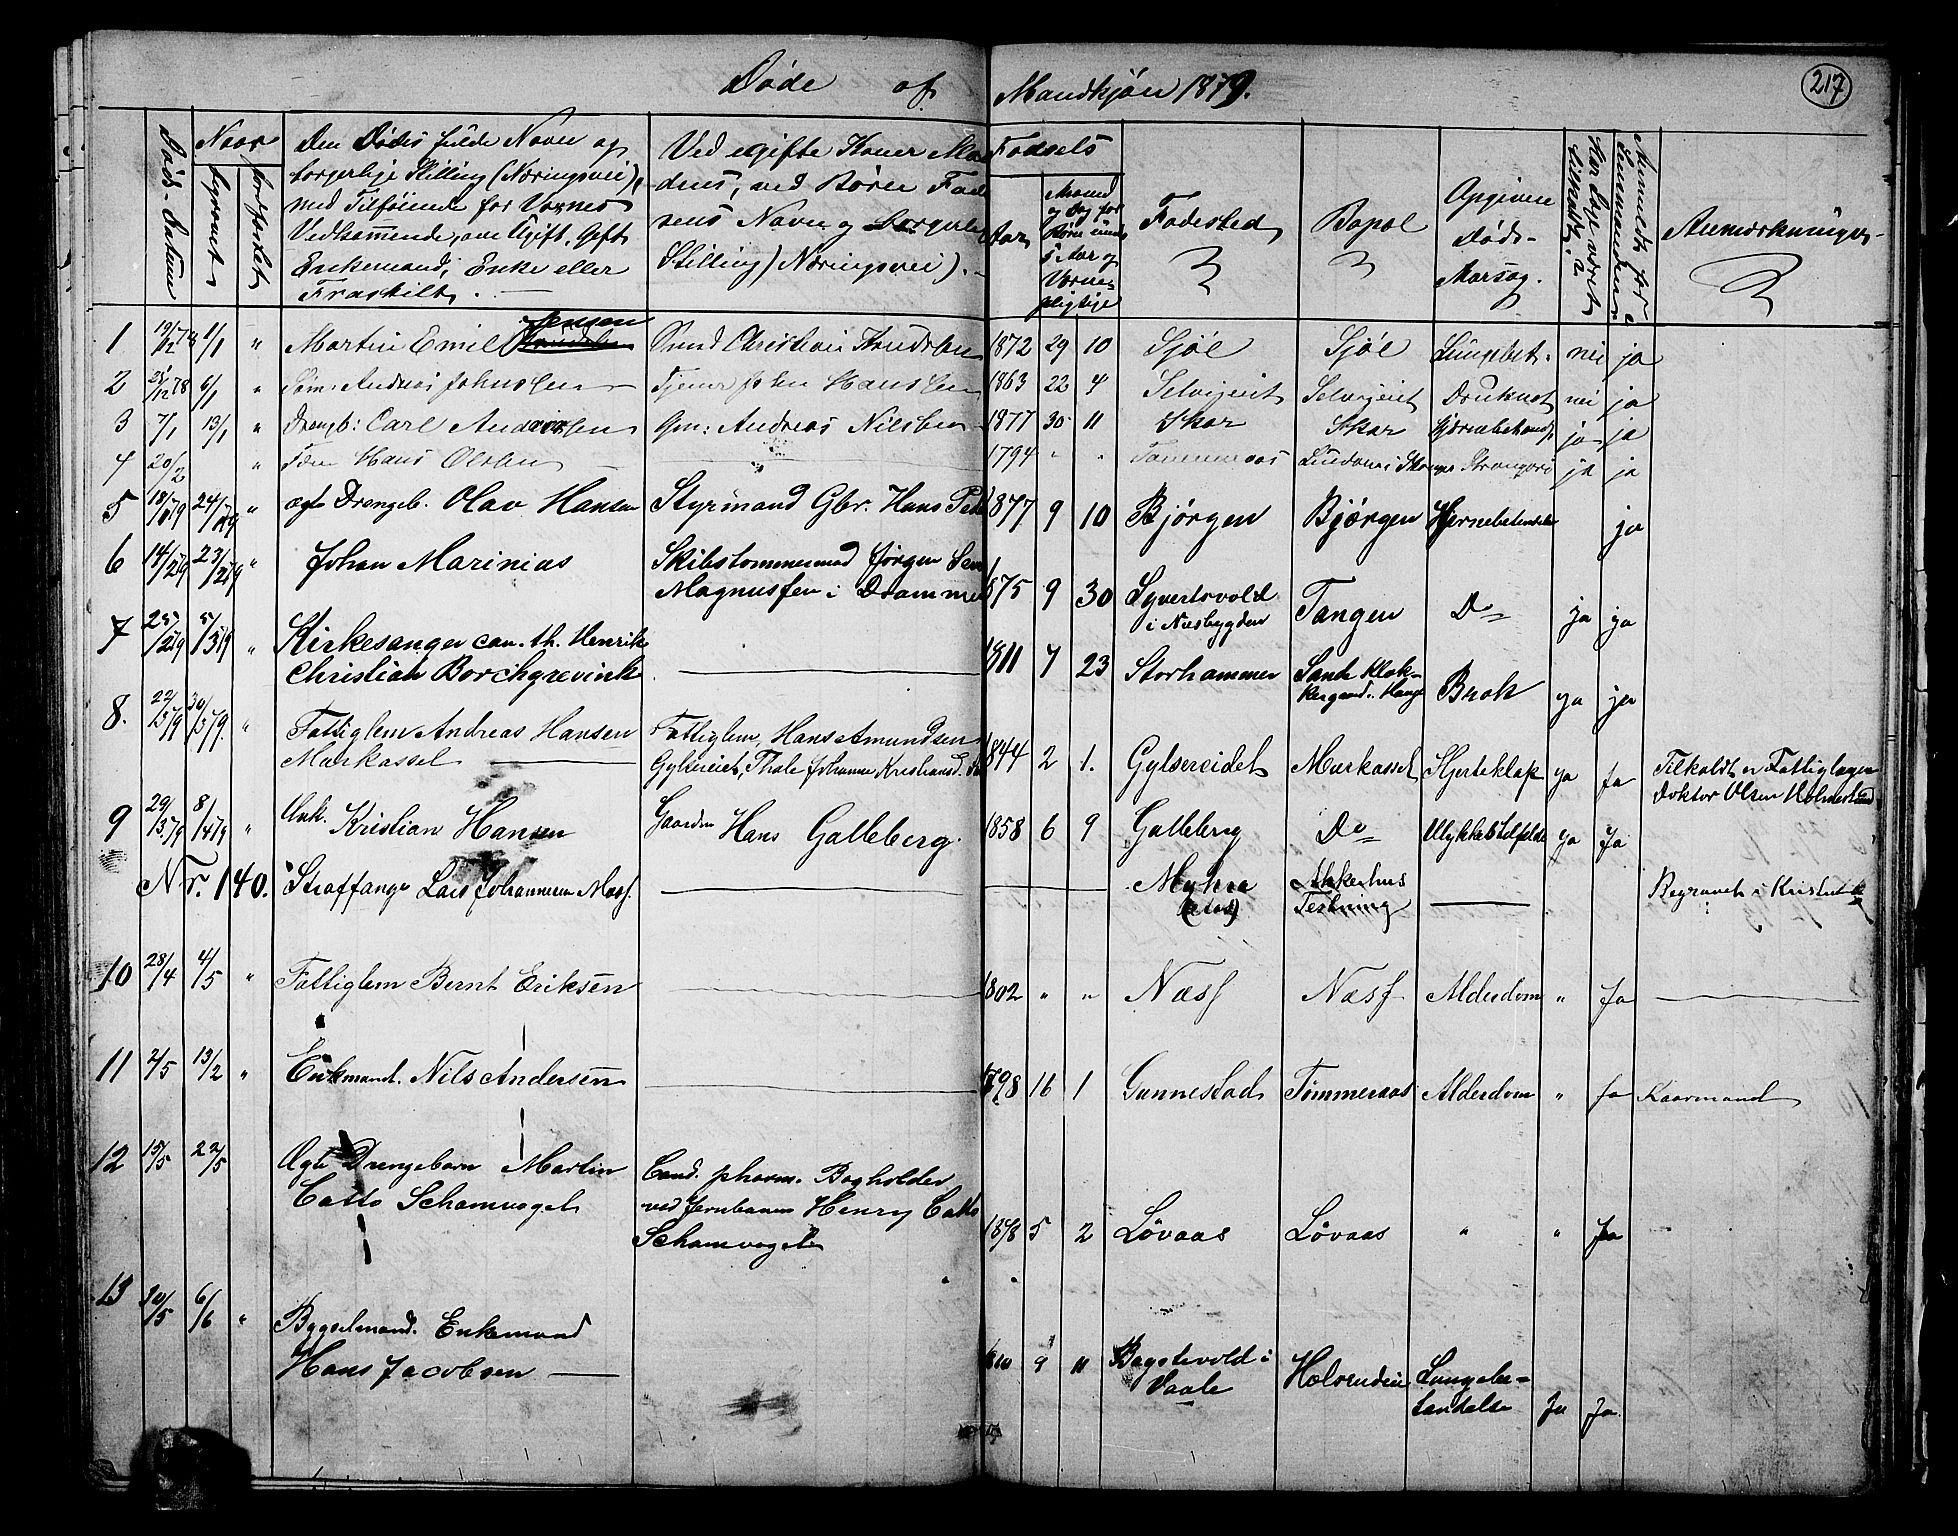 Døde af Mandkjøn 1879.
217
Døds-Datum
Naar
begravet
jordfæstet
Den Dødes fulde Navn og
borgerlige Stilling (Næringsvei),
med Tilføiende for Voxnes
Vedkommende, om Ugift, Gift
Enkemand, Enke eller
Fraskilt.
Ved egifte Koner Man-
dens, ved Børn Fade-
rens Navn og Borgerlig
Stilling (Næringsvei).
Fødsels
Aar
Maaned
og Dag for
Børn under
5 Aar og
Værne-
pligtige
Fødested
Bopæl
Opgiven
Døds-
Aarsag.
Har Læge været
tilkaldt?
Anmeldt for
Lensmanden?
Anmærkninger
1 19/12 78 1/1 " Martin Emil Jensen Svend Christian Knudsen 1872 29 10 Sjøl Sjøl Lungebet. nei ja
2 25/12 78 6/1 " Søm. Andreas Johnsen Tjener John Hansen 1863 22 4 Selvigeiet Selvigeiet Druknet nei ja
3 7/1 13/1 " Drengb: Carl Andersen Gm: Andreas Nilsen 1877 30 11 Skar Skar Hjernebetænd. ja ja
4 20/2 " Fm Hans Olsen 1794 " " Tømmeraas ja ja
5 18/1 79 24/1 79 " ægte Drengeb. Olav Hansen Styrmand Gbr. Hans Pede 1877 9 10 Bjørgen Bjørgen Hjernebetændelse ja
6 14/2 79 23/2 79 " Johan Marinias Skibstømmermand Jørgen
Magnussen i Drammen 1875 9 30 Syvertsvold
i Næsbygden Tangen Do ja ja
7 25/2 79 5/3 79 " Kirkesanger can. th. Henrik
Christian Borchgrevink 1811 7 23 Storhammer Sande Klok-
kergaard. Hauge Brok ja ja
8. 22/3 79 30/3 79. " Fattiglem Andreas Hansen
Markasset Fattiglem Hans Amundsen
Gylsereiet, Thale Johanne Kristiansd. 1844 2 1. Gylsereidet Markasset Hjerteklap ja ja Tilkaldt er Fattiglægen
Doktor Olsen Holmestrand
9 29/3 79 8/4 79 " Unk. Kristian Hansen Gaardm Hans Galleberg. 1858 6 9 Galleberg Do Ulykkestilfelde ja Ja
Nr. 140. Straffange Lars Johannesen Mæss. Myhre Akkershus
Festning Begravet i Kristia
10 28/4 4/5 " Fattiglem Bernt Eriksen 1802 " " Næss Næss Alderdom " Ja
11 2/5 13/2 " Enkmand. Nils Andersen 1798 16 1 Gunnestad Tømmeraas Alderdom " Ja Kaarmand
12 15/5 22/5 Ægte Drengebarn Martin
Catto Schamvogel Cand. pharm. Bogholder
ved Jernbanen Henry Catto
Schamvogel 1878 5 2 Løvaas Løvaas " " Ja
13 30/5 6/6 " Bygselmand. Enkemand
Hans Jacobsen 1810 9 11 Bagstevold i
Vaale Hølsendin Lungebe-
tændelse Ja Ja